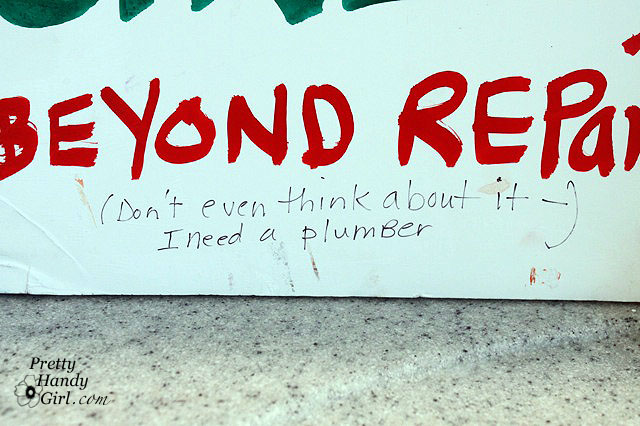 BEYOND REPai
(Don't even think about it -)
I need a plumBER
Pretty
Handy
Girl.com